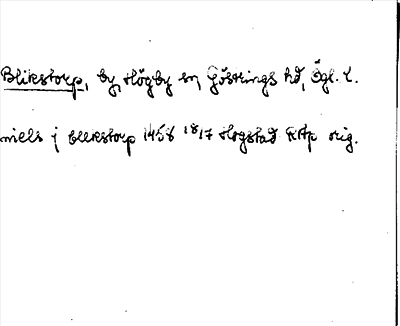 Blikstorp, by, Högby sn, Göstrings hd, Ögl. l.
niels j blikstorp 1458 18/7 Hogstad RAp orig.